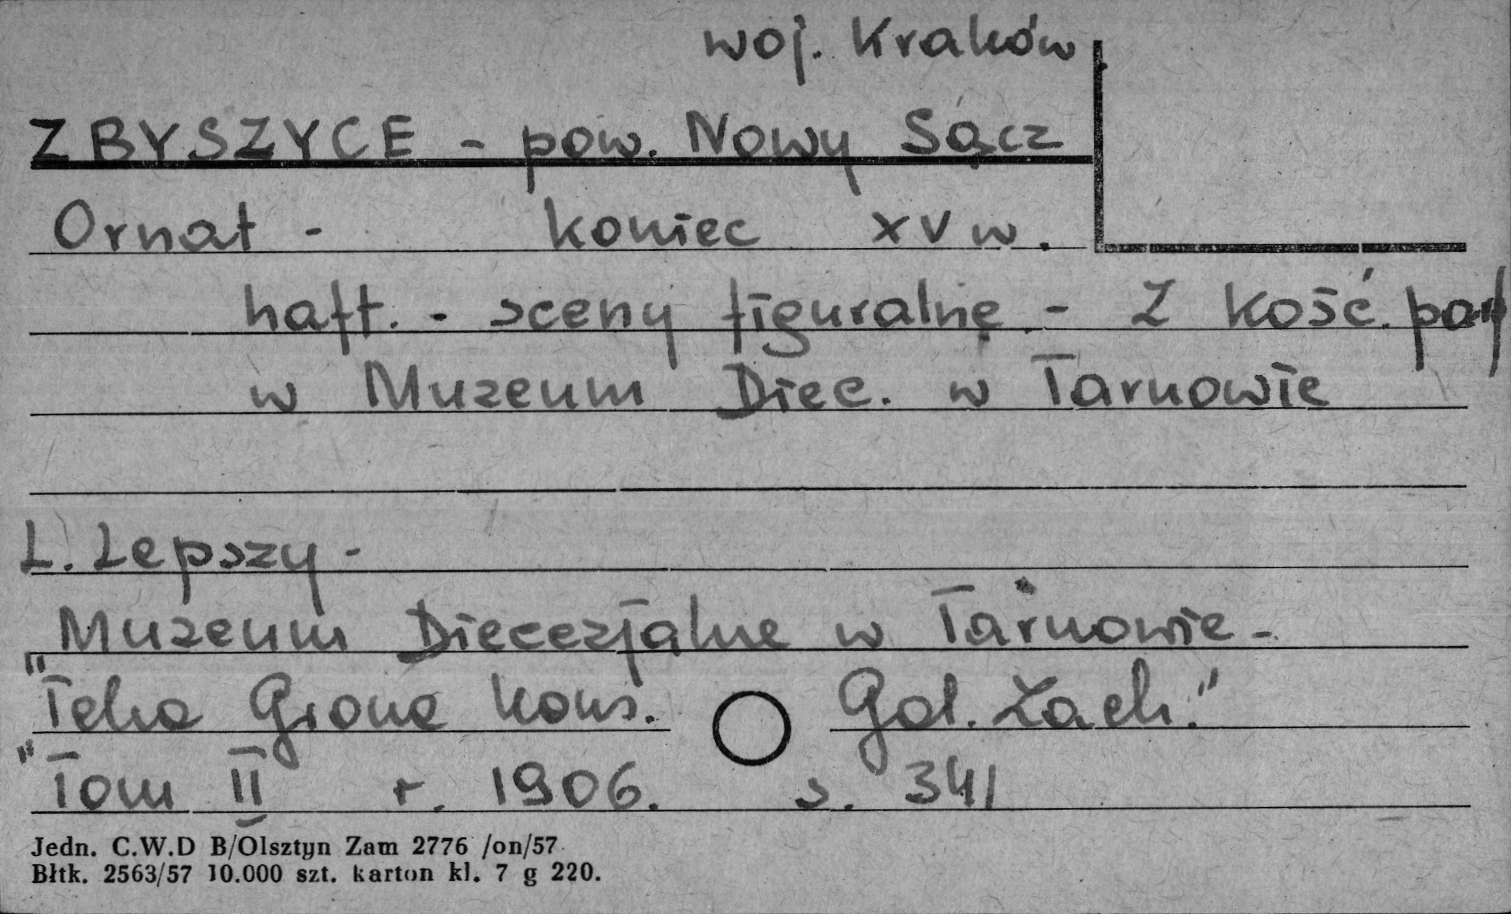 woj. Kraków
ZBYSZYCE - pow. Nowy Sącz
Ornat - koniec XV w.
haft. - sceny figuralne - Z kość. par
w Muzeum Diec. w Tarnowie
L. Lepszy -
Muzeum Diecezjalne w Tarnowie -
"Teka Grona Kons. Gal. Zach."
"Tom II r. 1906. s. 341
Jedn. C.W.D B/Olsztyn Zam 2776 /on/57
Błtk. 2563/57 10.000 szt. karton kl. 7 g 220.